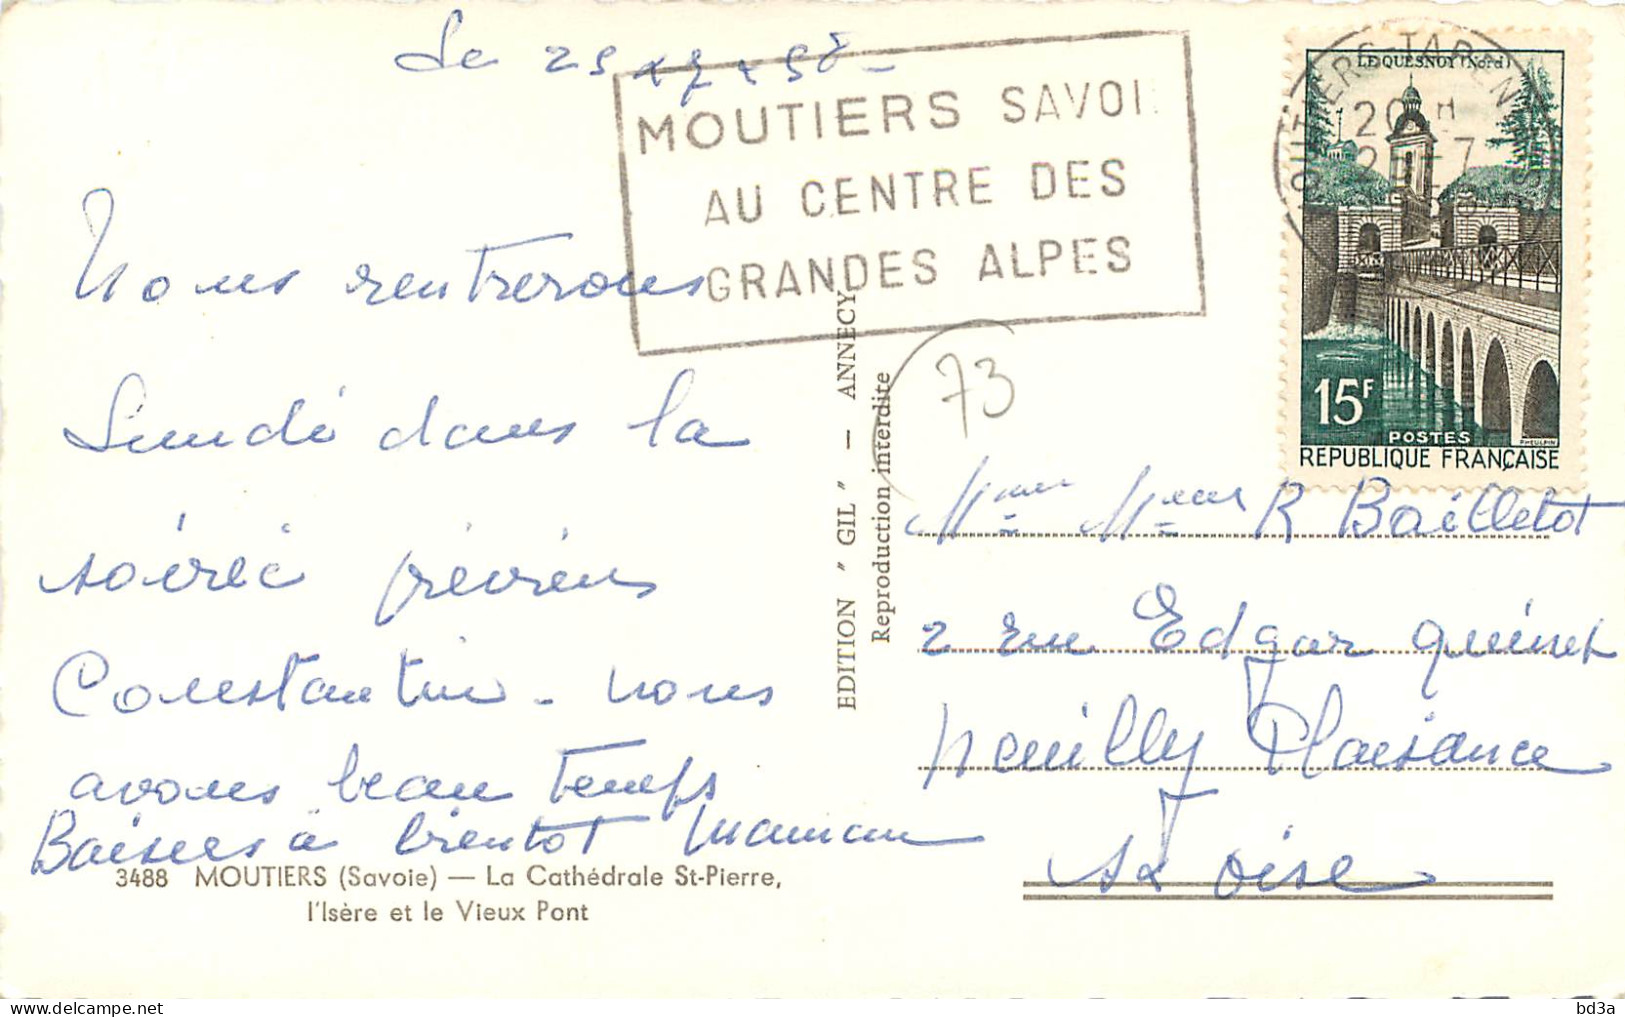 Le 25 x 7 x 58 -
MOUTIERS SAVOI
AU CENTRE DES
GRANDES ALPES
LE QUESNOY (Nord)
20 H
15F
POSTES
PHEULPIN
REPUBLIQUE FRANÇAISE
73
Nous rentrerons
Lundi dans la
soirée préviens
Constantin - nous
avons beau temps
Baisers à bientôt Maman
3488 MOUTIERS (Savoie) — La Cathédrale St-Pierre,
l'Isère et le Vieux Pont
EDITION " GIL " — ANNECY
Reproduction interdite
R Bailletot
2 rue Edgar Quinet
Neuilly Plaisance
S& Oise
bd3a